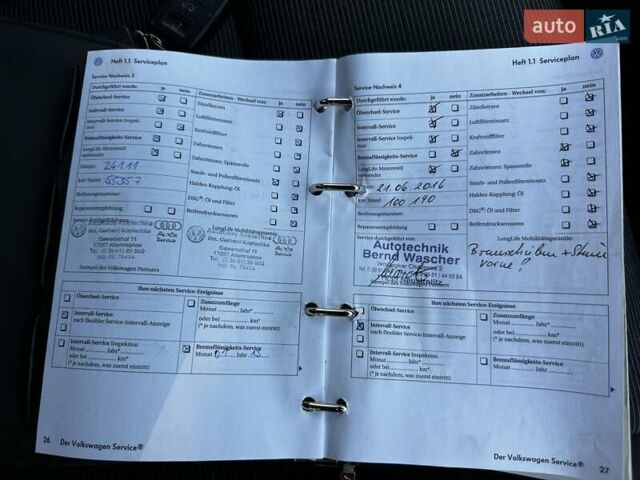 auto RIA
.com
Heft 1.1 Serviceplan
Service-Nachweis 3
Durchgeführt wurde: ja nein
Ölwechsel-Service
Intervall-Service
Intervall-Service Inspek-
tion
Bremsflüssigkeits-Service
LongLife-Motoröl
verwendet
Datum: 26.1.11
km-Stand: 55357
Rechnungsnummer:
Reparaturempfehlung
Service durchgeführt durch:
Zusatzarbeiten - Wechsel von: ja nein
Zündkerzen
Luftfiltereinsatz
Kraftstofffilter
Zahnriemen
Zahnriemen: Spannrolle
Staub- und Pollenfiltereinsatz
Haldex-Kupplung: Öl
DSG®: Öl und Filter
Reifendruckensensoren
LongLife Mobilitätsgarantie:
Autohaus Kopischka
17087 Altentreptow
Stempel des Volkswagen Partners
Ihre nächsten Service-Ereignisse
Ölwechsel-Service
Intervall-Service
nach flexibler Service-Intervall-Anzeige
Intervall-Service Inspektion
Monat Jahr*
oder bei km*
(* je nachdem, was zuerst eintritt)
Zusatzumfänge
Monat Jahr*
oder bei km*
(* je nachdem, was zuerst eintritt)
Bremsflüssigkeits-Service
Monat 01 Jahr 13
26 Der Volkswagen Service®
Heft 1.1 Serviceplan
Service-Nachweis 4
Durchgeführt wurde: ja nein
Ölwechsel-Service
Intervall-Service
Intervall-Service Inspek-
tion
Bremsflüssigkeits-Service
LongLife-Motoröl
verwendet
21.06.2016
km-Stand: 100 190
Rechnungsnummer:
Reparaturempfehlung
Service durchgeführt durch:
Autotechnik
Bernd Wascher
Zusatzarbeiten - Wechsel von: ja nein
Zündkerzen
Luftfiltereinsatz
Kraftstofffilter
Zahnriemen
Zahnriemen: Spannrolle
Staub- und Pollenfiltereinsatz
Haldex-Kupplung: Öl
DSG®: Öl und Filter
Reifendrucksensoren
LongLife Mobilitätsgarantie:
Bremsscheiben + Steine
vorne!
Ihre nächsten Service-Ereignisse
Ölwechsel-Service
Intervall-Service
nach flexibler Service-Intervall-Anzeige
Intervall-Service Inspektion
Monat Jahr*
oder bei km*
(* je nachdem, was zuerst eintritt)
Zusatzumfänge
Monat Jahr*
oder bei km*
(* je nachdem, was zuerst eintritt)
Bremsflüssigkeits-Service
Monat Jahr
Der Volkswagen Service® 27